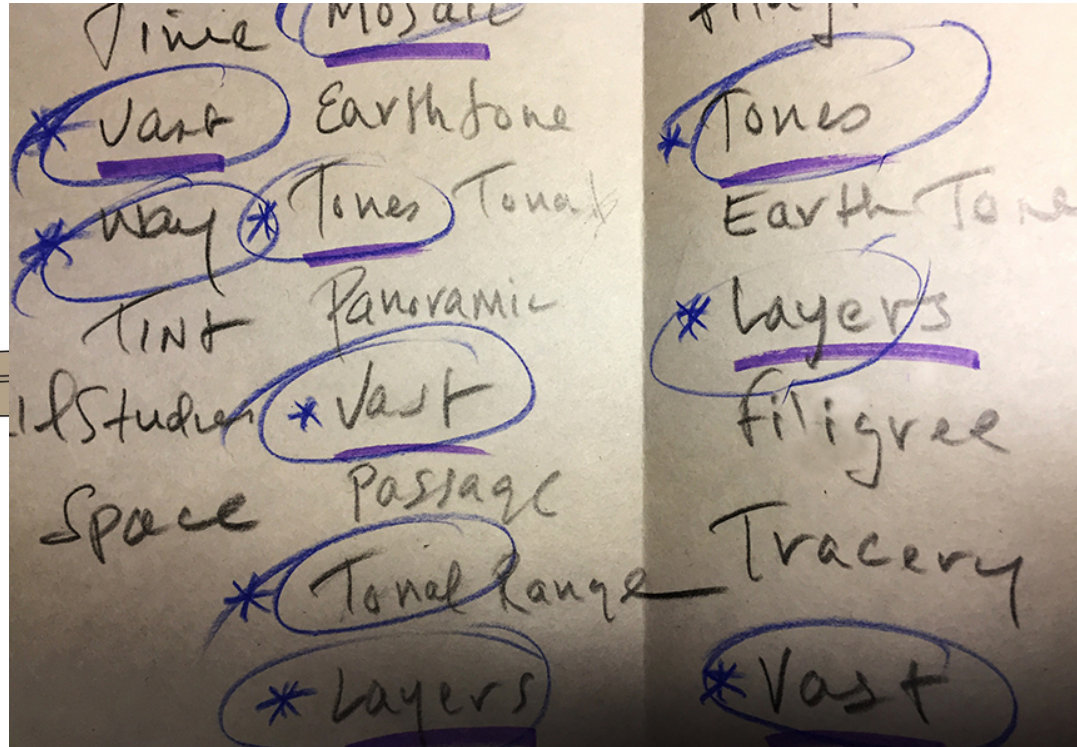 Time
Vast
Way
Tint
Studies
Space
Mosaic
Earthtone
* Tones Tonal
Panoramic
* Vast
Passage
* Tonal Range
* Layers
* Tones
Earth Tone
* Layers
filigree
Tracery
* Vast